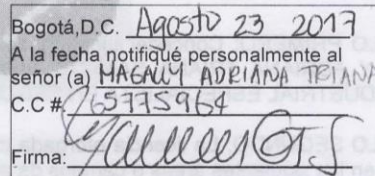 Bogotá,D.C. Agosto 23 2017
A la fecha notifiqué personalmente al
señor (a) MAGALLY ADRIANA TRIANA
C.C # 65775964
Firma: